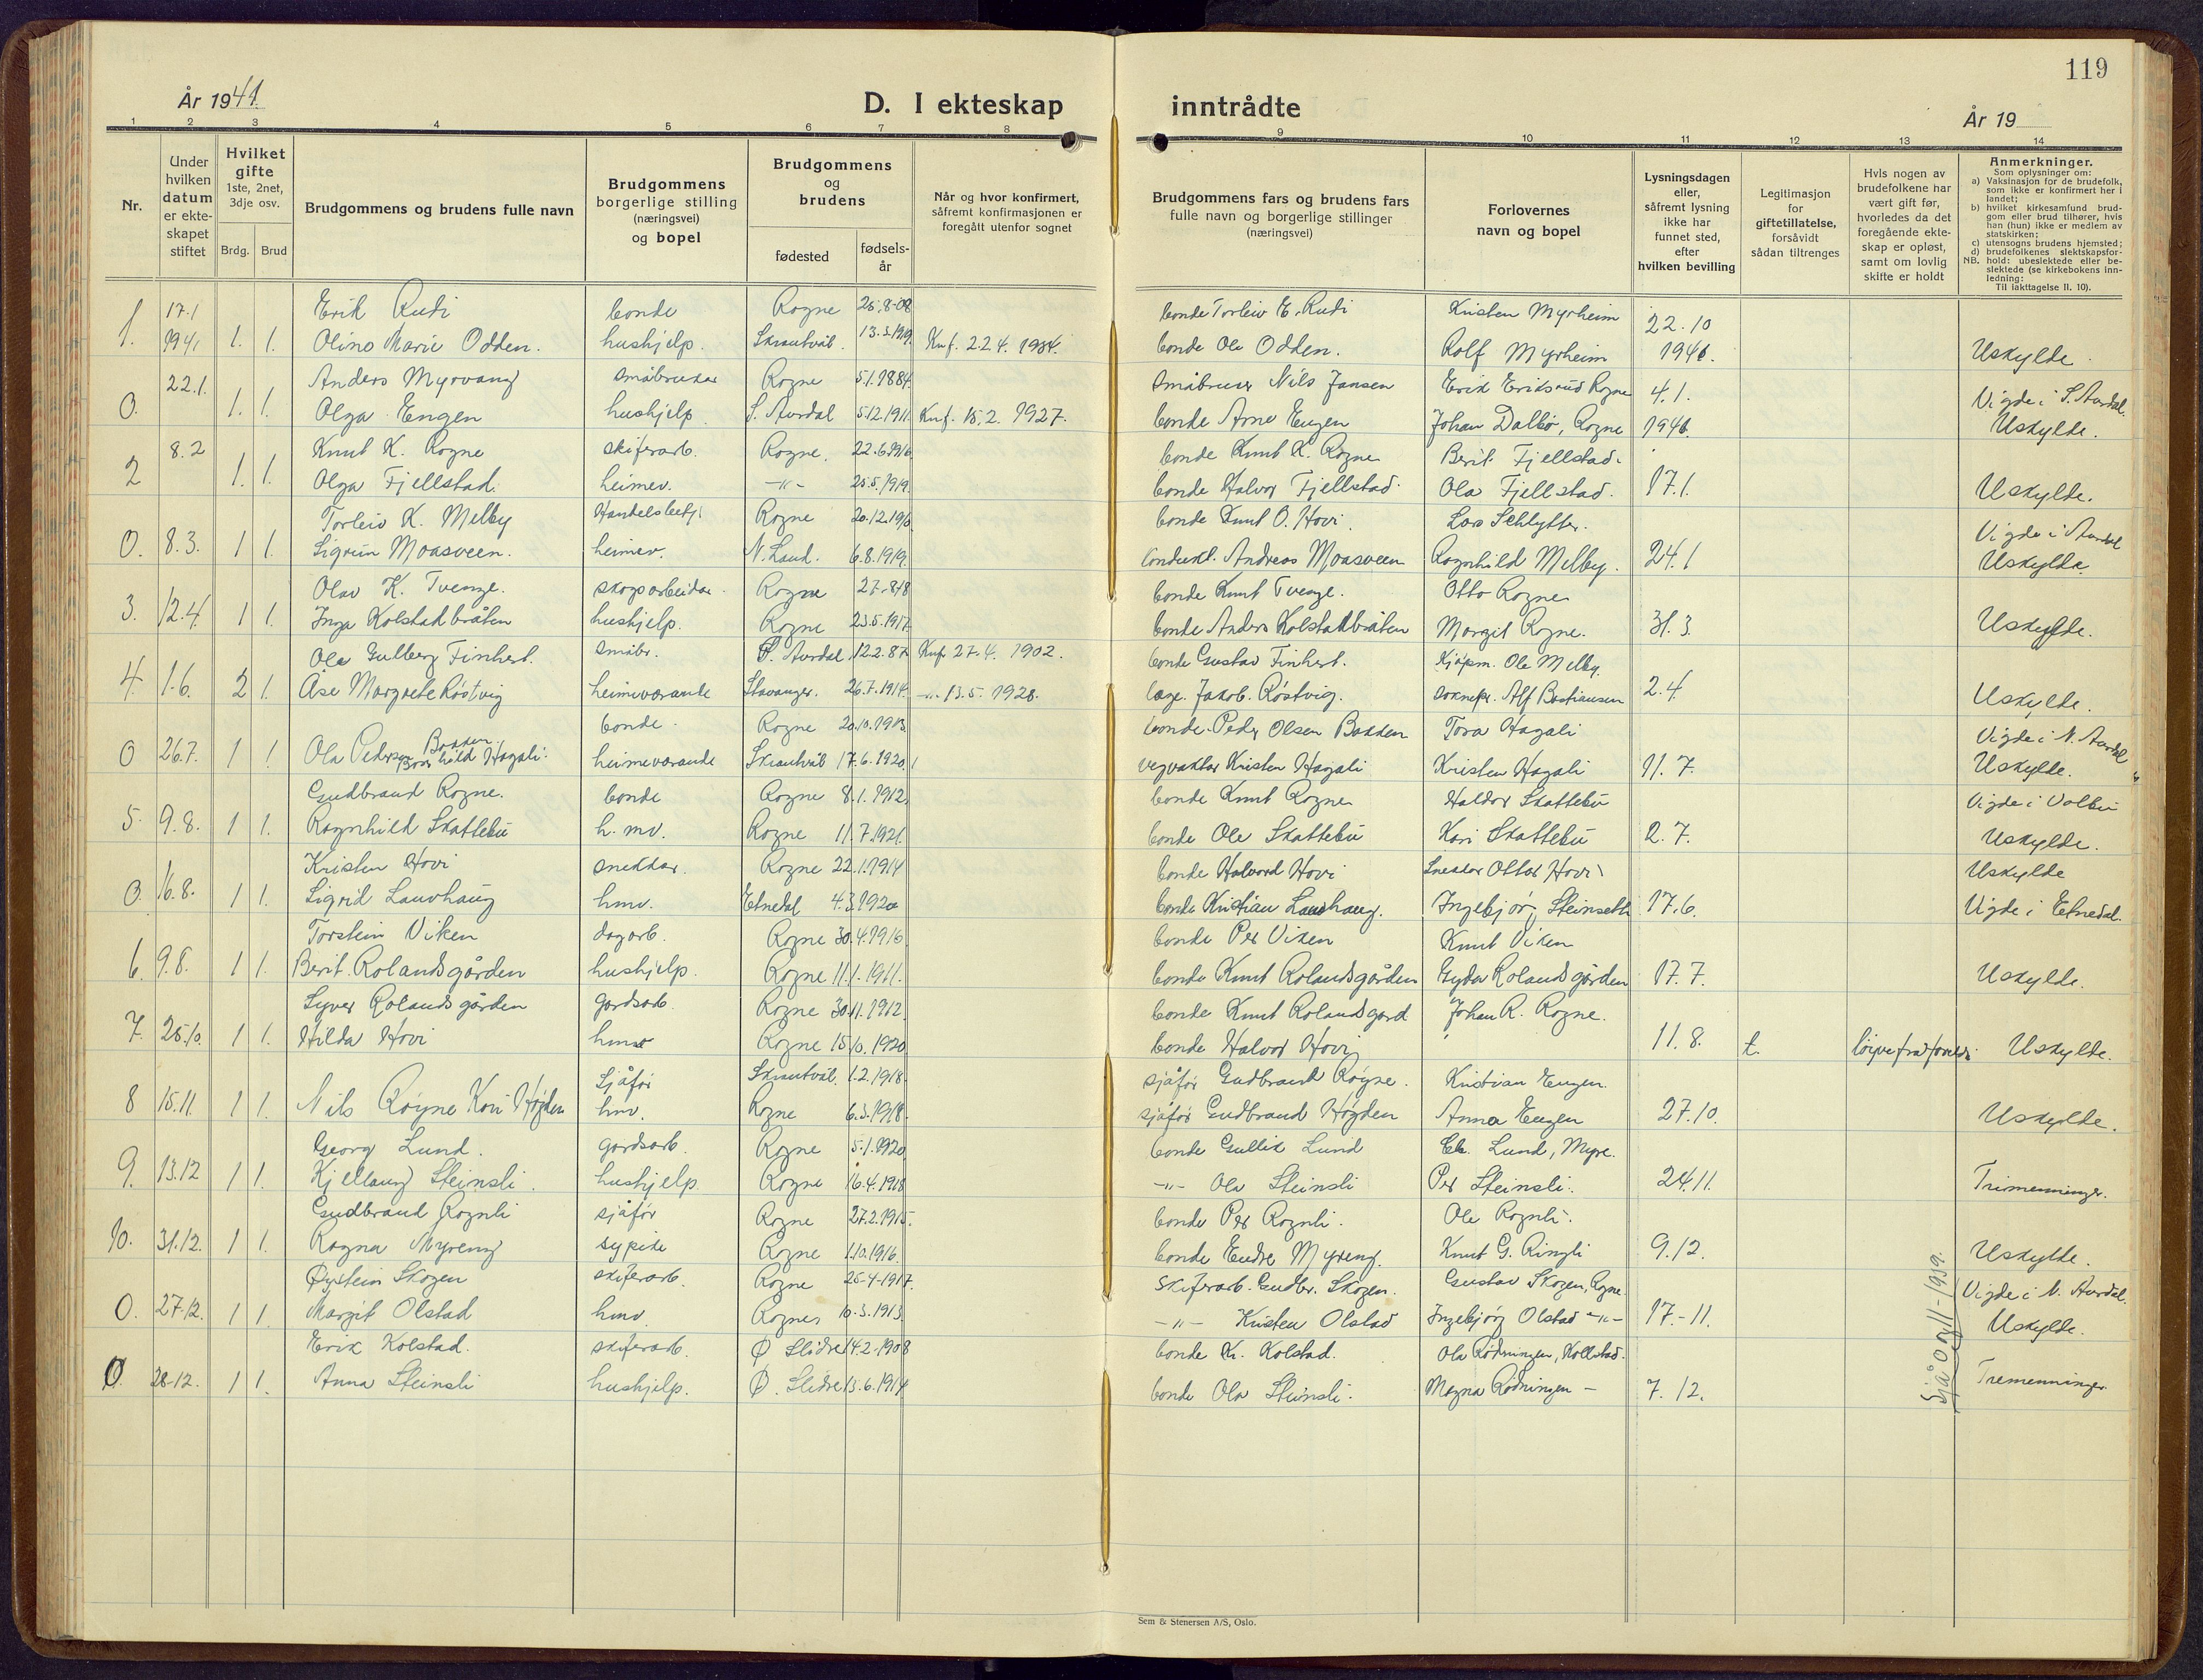 119
År 1941.
D. I ekteskap inntrådte
År 19
1 2 3 4 5 6 7 8 9 10 11 12 13 14
Nr.
Under hvilken datum er ekteskapet stiftet
Hvilket gifte 1ste, 2net, 3dje osv.
Brdg. Brud
Brudgommens og brudens fulle navn
Brudgommens borgerlige stilling (næringsvei) og bopel
Brudgommens og brudens
fødested
fødsels-år
Når og hvor konfirmert, såfremt konfirmasjonen er foregått utenfor sognet
Brudgommens fars og brudens fars fulle navn og borgerlige stillinger (næringsvei)
Forlovernes navn og bopel
Lysningsdagen eller, såfremt lysning ikke har funnet sted, efter hvilken bevilling
Legitimasjon for giftetillatelse, forsåvidt sådan tiltrenges
Hvis nogen av brudefolkene har vært gift før, hvorledes da det foregående ekteskap er opløst, samt om lovlig skifte er holdt
Anmerkninger.
Som oplysninger om:
a) Vaksinasjon for de brudefolk, som ikke er konfirmert her i landet;
b) hvilket kirkesamfund brudgom eller brud tilhører, hvis han (hun) ikke er medlem av statskirken;
c) utensogns brudens hjemsted;
d) brudefolkenes slektskapsforhold: ubeslektede eller beslektede (se kirkebokens innledning:
NB.
Til iakttagelse II. 10).
17.1 Erik Rudi bonde Rogne 26.8-08 bonde Torleiv E. Rudi Kristen Myrheim 22.10
1. 1941 1. 1. Olino Marie Odden. hushjelp. Skrautvål. 13.3.1919. Knf. 22.4. 1934. bonde Ole Odden. Rolf Myrheim 1940. Uskylde.
22.1. Anders Myrvang småbrukar Rogne 5.1.1884 småbruker Nils Jansen Erik Eriksrud Rogne 4.1. Vigde i S. Aurdal.
0. 1. 1. Olga Engen hushjelp S. Aurdal 5.12.1911. Knf. 15.2. 1927. bonde Arne Engen Johan Dalbø, Rogne 1941. Uskylde.
8.2 Knut K. Rogne skiferarb. Rogne. 22.6.1916 bonde Knut K. Rogne Berit Fjellstad.
2 1. 1. Olga Fjellstad. heimev. -"- 25.5.1919. bonde Halvor Fjellstad. Ola Fjellstad. 17.1. Uskylde.
Torleiv K. Melby Handelsbetj. Rogne 20.12.1910 bonde Knut O. Hovi. Lars Schlytter. Vigde i Aurdal
0. 8.3. 1 1. Sigrun Moasveen. heimev. N. Land. 6.8.1919. kondukt. Andreas Moasveen Ragnhild Melby. 24.1 Uskylde.
Olav K. Tvenge. skogsarbeidar. Rogne 27.-8.18 bonde Knut Tvenge. Otto Rogne
3. 12.4 1 1. Inga Kolstadbråten hushjelp. Rogne 23.5.1917 bonde Anders Kolstadbråten Margit Rogne. 31.3. Uskylde.
Ole Gulberg Finhert. småbr. S. Aurdal 12.2.87 Knf. 27.4. 1902. bonde Gustav Finhert. Kjøpm. Ole Melby.
4 1.6. 2 1. Åse Margrete Røstvig heimeverande Stavanger. 26.7.1914. -"- 13.5. 1928. læge. Jakob. Røstvig. soknepr. Alf Bastiansen 2.4. Uskylde.
bonde. Rogne 20.10.1913. bonde. Peder Olsen Bakken Tora Hagali Vigde i N. Aurdal
0 26.7. 1 1. Ola Pedersen Bakken hild Hagali. heimeverande Skrautvål 17.6.1920. vegvaktar Kristen Hagali Kristen Hagali 11.7. Uskylde.
Gudbrand Rogne. bonde Rogne 8.1.1912. bonde Knut Rogne Haldor Skattebu Vigde i Volbu
5. 9.8. 1 1. Ragnhild Skattebu h.mv. Rogne 11.7.1921. bonde Ole Skattebu Kari Skattebu 2.7. Uskylde.
Kristen Hovi snekkar. Rogne 22.1.1914 bonde Halvord Hovi Snekkar Ottar Hovi Uskylde
0. 16.8. 1 1. Sigrid Lauvhaug hmv. Etnedal 4.3.1920 bonde Kristian Lauvhaug. Ingebjør Steinseth 17.6. Vigde i Etnedal.
Torstein Viken dagarb. Rogne 30.4.1916 bonde Per Viken Knut Viken
6. 9.8. 1 1. Berit Rolandsgården hushjelp. Rogne 11.1.1911. bonde Knut Rolandsgården Gyda Rolandsgården 17.7. Uskylde.
Syver Rolandsgården gardsarb. Rogne 30.11.1912. bonde Knut Rolandsgard Johan R. Rogne.
7. 25.10. 1 1. Hilda Hovi hmv Rogne 15.10.1920 bonde Halvor Hovi 11.8. t. Uskylde.
Sjåfør Skrautvål. 1.2.1918. sjåfør Gudbrand Røyne. Kristian Engen.
8 15.11. 1 1. Nils Røyne Kari Høgden hmv. Rogne 6.3.1918. sjåfør Gudbrand Høgden Anna Engen 27.10. Uskylde.
Georg Lund. gardsarb. Rogne 5.1.1920 bonde Gullik Lund Lund, Myre.
9. 13.12 1 1. Kjellaug Steinsli. hushjelp. Rogne 16.4.1918 -"- Ola Steinsli Per Steinsli. 24.11. Trimenninger.
Gudbrand Rognli sjåfør Rogne 27.2.1915. bonde Per Rognli. Ole Rognli.
10. 31.12. 1 1. Ragna Myreng sypike Rogne 1.10.1916. bonde Endre Myreng. Knut G. Ringli 9.12. Uskylde.
Øystein Skogen skiferarb. Rogne 25-4-1917. Skiferarb. Gudbr. Skogen. Gustav Skogen, Rogne. Vigde i N. Aurdal.
0. 27.12. 1 1. Margit Olstad hmv. Rogne 10.3.1913. -"- Kristen Olstad Ingebjørg Olstad -"- 17.-11. Uskylde.
Erik Kolstad. skiferarb. Ø Slidre 14.2.1908 bonde Kr. Kolstad. Ola Rødningen, Kollstad.
0. 28-12. 1 1. Anna Steinsli hushjelp. Ø. Slidre 13.6.1914 bonde Ola Steinsli. Magna Rødningen - 7.12. Tremenninger.
Sjå 11-1939.
Sem & Stenersen A/S, Oslo.